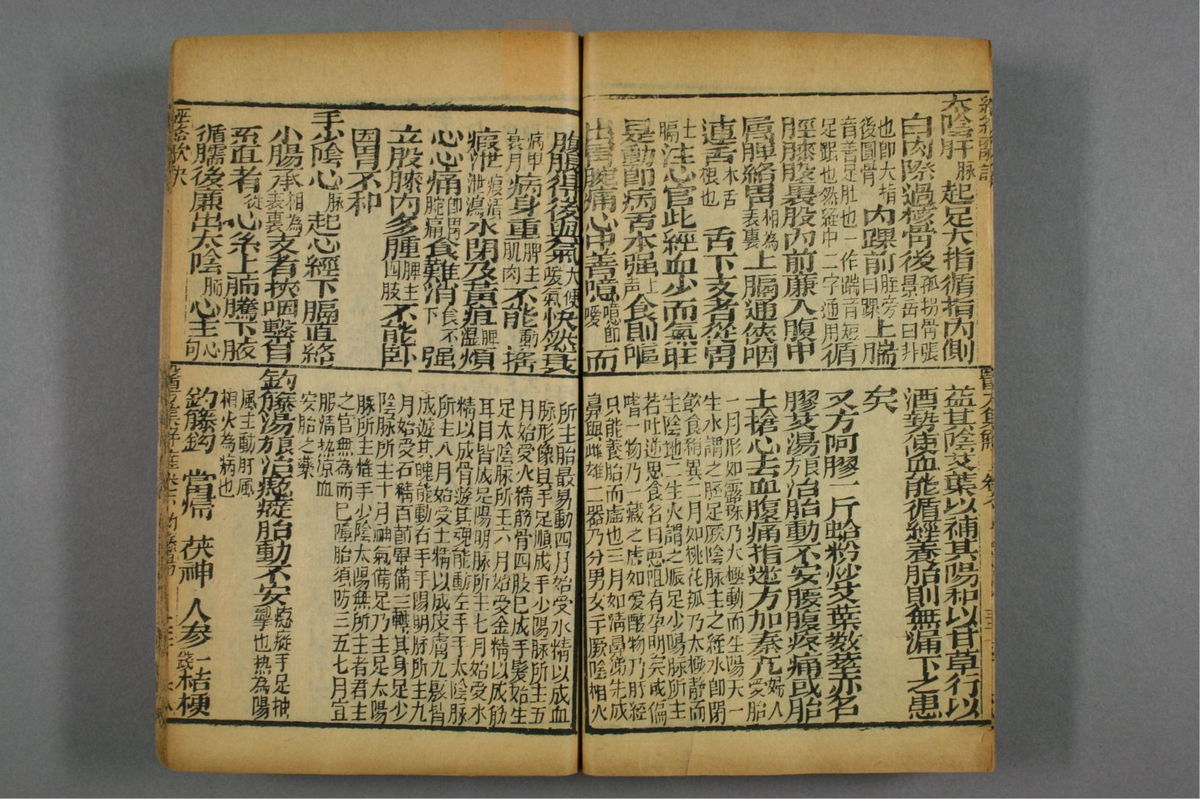 太陰肝脉起足大指循指內側
白肉際過核骨後孤拐骨張景岳曰非
也即大指後圓骨內踝前曰踝胫旁上腨
音善足肚也一作踹音短足跟也然經中二字通用循
脛膝股裏股內前廉入腹中
属脾絡胃相為表裏上膈通俠咽
連舌本舌根也舌下支者從胃
土膈注心宮此經血少而氣旺
是動即病舌本强上声食則嘔
出胃脘痛心中善噫噫即噯而
益其陰艾葉以補其陽和以甘草行以
酒勢使血能循經養胎則無漏下之患
矣
又方阿膠一斤蛤粉炒艾葉數莖亦名
膠艾湯㫾治胎動不安腰腹疼痛或胎
上搶心去血腹痛指迷方加秦艽婦人受胎
一月形如露珠乃太極動而生陽天一
生水謂之胚足厥陰脉主之經水即閉
飲食稍異二月如桃花瓣乃太極靜而
生陰地二生火謂之脈足少陽脉所主
若吐逆思食名曰惡阻有孕明矣或偏
嗜一物乃一臟之虛如愛酸物乃肝經
只能養胎而虛也三月如清鼻涕先成
鼻與雌雄二器乃分男女手厥陰相火
腹脹得後與氣大便噯氣快然衰
病身重脾主肌肉不能動搖
瘕泄瘕積泄瀉水閉及黃疸脾濕煩
心心痛即胃脘痛食難消食不下强
立股膝內多腫脾主四肢不能卧
因胃不和
手少陰心脉起心經下膈直絡
小腸承相為表裏支者挾咽繫目
系直者從心系上肺騰下腋
循臑後廉出太陰肺心主心
所主胎最易動四月始受水精以成血
脉形像具手足順成手少陽脉所主五
月始受火精筋骨四肢已成毛髮始生
足太陰脉所主六月始受金精以成筋
耳目皆成足陽明脉所主七月始受木
精以成骨遊其魂能動左手手太陰脉
所主八月始受土精以成皮膚九竅皆
成遊其魄能動右手手陽明脉所主九
月始受石精百節畢備三轉其身足少
陰脉所主十月神氣備足乃生足太陽
脉所主惟手少陰太陽無所主者君主
之官無為而已障胎須防三五七月宜
服清熱凉血
安胎之藥
鈎籐湯㫾治瘈瘲胎動不安瘈瘲手足抽搐也熱為陽
風主動肝風
相火為病也
鈎籐鈎　當歸　茯神　人參一錢桔梗